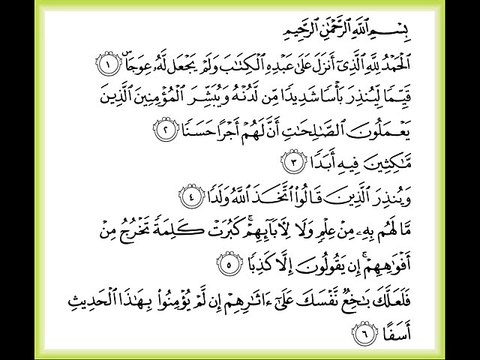 بِسْمِ ٱللَّهِ ٱلرَّحْمَٰنِ ٱلرَّحِيمِ
ٱلْحَمْدُ لِلَّهِ ٱلَّذِىٓ أَنزَلَ عَلَىٰ عَبْدِهِ ٱلْكِتَٰبَ وَلَمْ يَجْعَل لَّهُۥ عِوَجَاۜ ١
قَيِّمًا لِّيُنذِرَ بَأْسًا شَدِيدًا مِّن لَّدُنْهُ وَيُبَشِّرَ ٱلْمُؤْمِنِينَ ٱلَّذِينَ
يَعْمَلُونَ ٱلصَّٰلِحَٰتِ أَنَّ لَهُمْ أَجْرًا حَسَنًا ٢
مَّٰكِثِينَ فِيهِ أَبَدًا ٣
وَيُنذِرَ ٱلَّذِينَ قَالُوا۟ ٱتَّخَذَ ٱللَّهُ وَلَدًا ٤
مَّا لَهُم بِهِۦ مِنْ عِلْمٍ وَلَا لِءَابَآئِهِمْ ۚ كَبُرَتْ كَلِمَةً تَخْرُجُ مِنْ
أَفْوَٰهِهِمْ ۚ إِن يَقُولُونَ إِلَّا كَذِبًا ٥
فَلَعَلَّكَ بَٰخِعٌ نَّفْسَكَ عَلَىٰٓ ءَاثَٰرِهِمْ إِن لَّمْ يُؤْمِنُوا۟ بِهَٰذَا ٱلْحَدِيثِ
أَسَفًا ٦